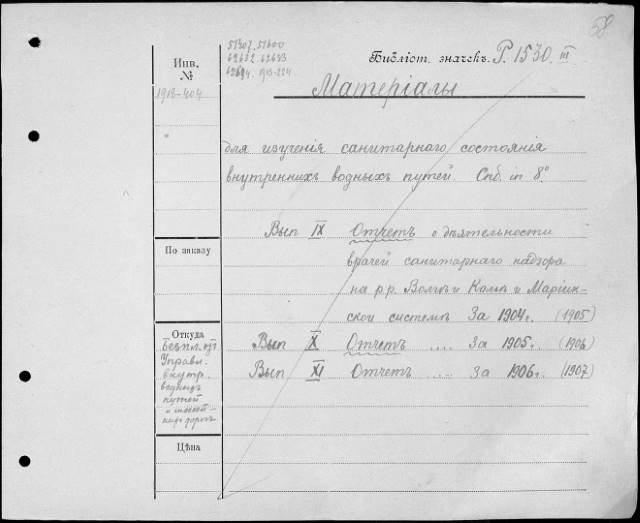 58
51307. 51600
62632. 62633
62634. 1913-224
Библіот. значекъ. P. 1530. III
Инв.
№
1913-404
Матеріалы
для изученія санитарнаго состоянія
внутреннихъ водныхъ путей. Спб. in 8°
Вып IX Отчетъ о дѣятельности
врачей санитарнаго надзора
на р.р. Волгѣ и Камѣ и Маріин-
ской системѣ За 1904г. (1905)
Вып X Отчетъ .... За 1905г. (1906)
Вып XI Отчетъ .... За 1906г. (1907)
По заказу
Откуда
Безпл. отъ
Управл.
внутр.
водныхъ
путей
и шоссей-
ныхъ дорогъ
Цѣна